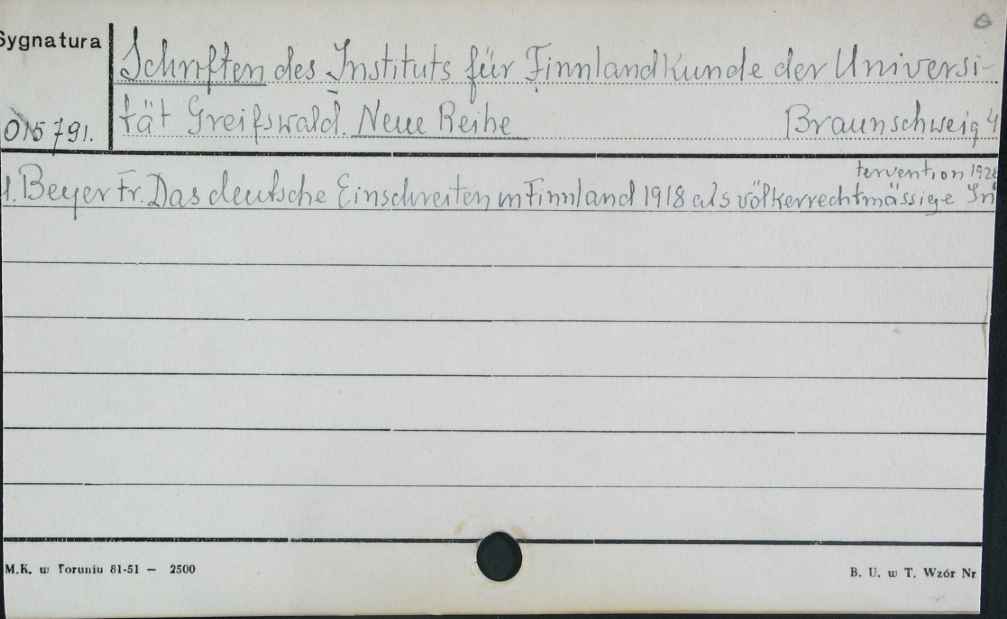 Sygnatura
Schriften des Instituts für Finnlandkunde der Universi-
015791.
tät Greifswald. Neue Reihe Braunschweig 4
tervention 192
1. Beyer Fr. Das deutsche Einschreiten in Finnland 1918 als völkerrechtmässige In
M.K. w Toruniu 81-51 — 2500
B. U. w T. Wzór Nr